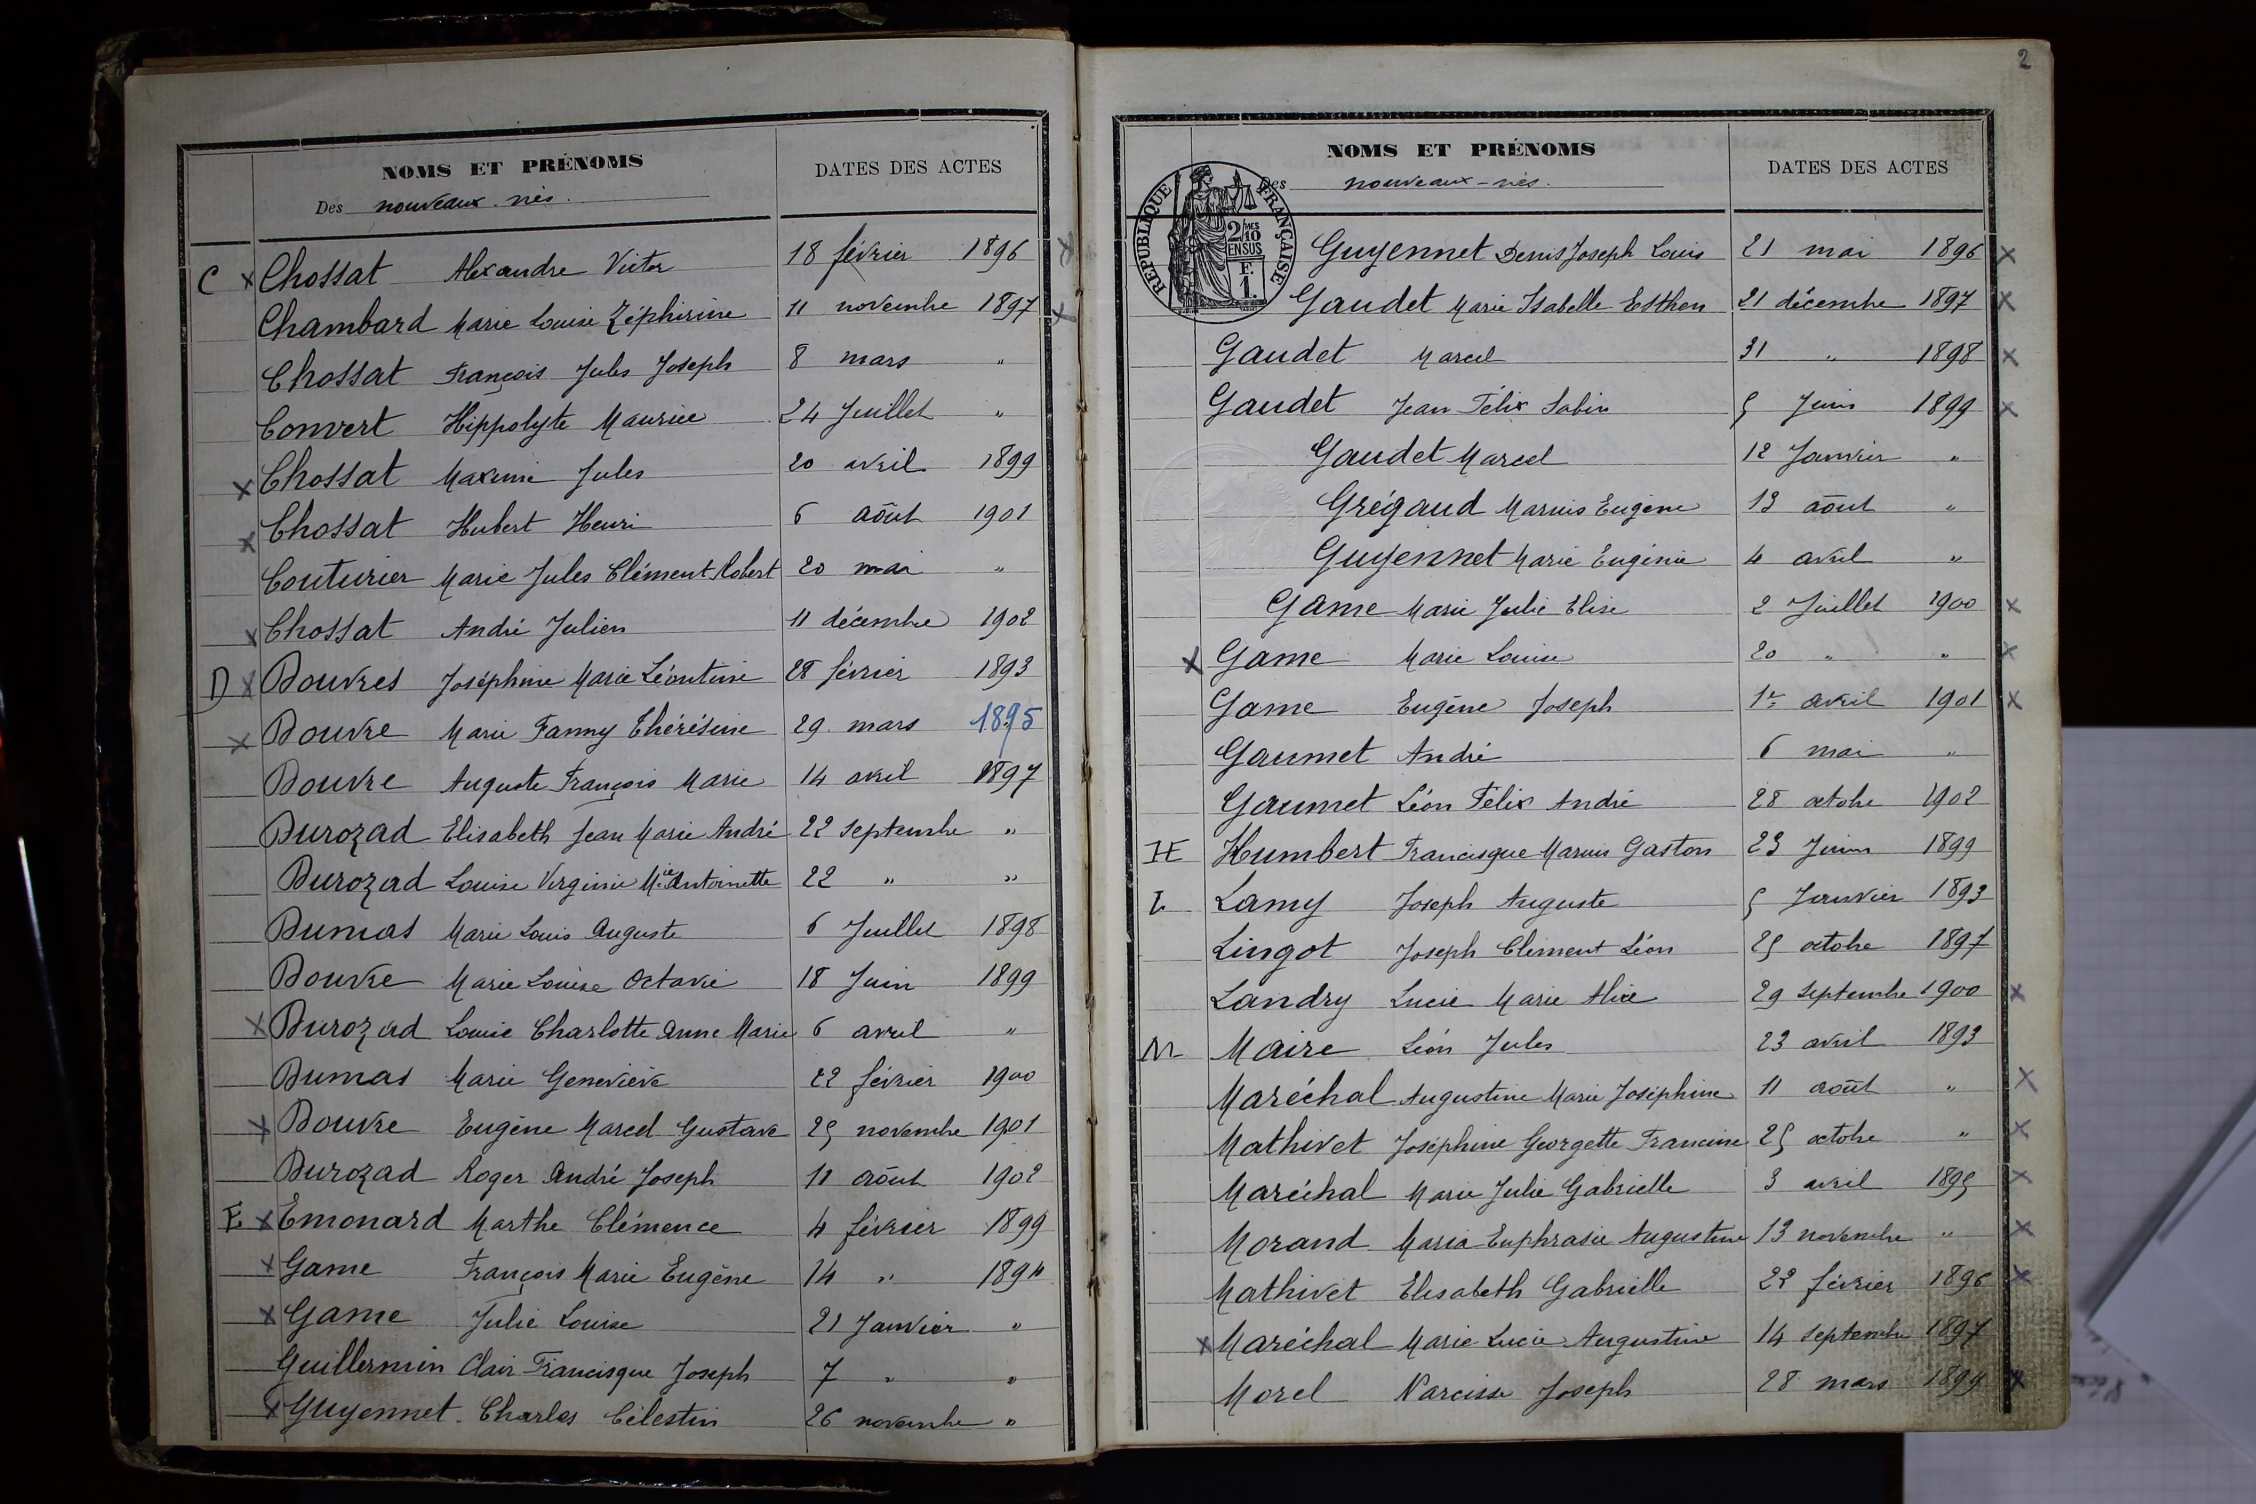 NOMS ET PRÉNOMS
DATES DES ACTES
Des nouveaux-nés.
C x Chossat Alexandre Victor 18 février 1896 x
Chambard Marie Louise Zéphirine 11 novembre 1897 x
Chossat François Jules Joseph 8 mars "
Convert Hippolyte Maurice 24 Juillet "
x Chossat Maxime Jules 20 avril 1899
x Chossat Hubert Henri 6 août 1901
Couturier Marie Jules Clément Robert 20 mai "
x Chossat André Julien 11 décembre 1902
D x Douvres Joséphine Marie Léontine 28 février 1893
x Douvre Marie Fanny Thérésine 29 mars 1895
Douvre Auguste François Marie 14 avril 1897
Durozad Elisabeth Jean Marie André 22 septembre "
Durozad Louise Virginie Mie Antoinette 22 " "
Dumas Marie Louis Auguste 6 Juillet 1898
Douvre Marie Louise Octavie 18 Juin 1899
x Durozad Louise Charlotte Anne Marie 6 avril "
Dumas Marie Geneviève 22 février 1900
x Douvre Eugène Marcel Gustave 25 novembre 1901
Durozad Roger André Joseph 11 août 1902
E x Emonard Marthe Clémence 4 février 1899
x Game François Marie Eugène 14 " 1894
x Game Julie Louise 21 Janvier "
Guillermin Clair Francisque Joseph 7 " "
x Guyennet Charles Célestin 26 novembre "
2
NOMS ET PRÉNOMS
DATES DES ACTES
Des nouveaux-nés.
RÉPUBLIQUE FRANÇAISE
2/10 MES
EN SUS
F.
1.
Guyennet Denis Joseph Louis 21 mai 1896 x
Gaudet Marie Isabelle Esther 21 décembre 1897 x
Gaudet Marcel 31 " 1898 x
Gaudet Jean Félix Sabin 5 Juin 1899 x
Gaudet Marcel 12 Janvier "
Grégaud Marius Eugène 13 août "
Guyennet Marie Eugénie 4 avril "
Game Marie Julie Elise 2 Juillet 1900 x
x Game Marie Louise 20 " " x
Game Eugène Joseph 1er avril 1901 x
Gaumet André 6 mai "
Gaumet Léon Félix André 28 octobre 1902
H Humbert Francisque Marius Gaston 23 Juin 1899
L Lamy Joseph Auguste 5 Janvier 1893
Lingot Joseph Clément Léon 25 octobre 1897
Landry Lucie Marie Alice 29 septembre 1900 x
M Maire Léon Jules 23 avril 1893
Maréchal Augustine Marie Joséphine 11 août " x
Mathivet Joséphine Georgette Francine 25 octobre " x
Maréchal Marie Julie Gabrielle 3 avril 1895 x
Morand Maria Euphrasie Augustine 13 novembre " x
Mathivet Elisabeth Gabrielle 22 février 1896 x
x Maréchal Marie Lucie Augustine 14 septembre 1897
Morel Narcisse Joseph 28 mars 1899 x